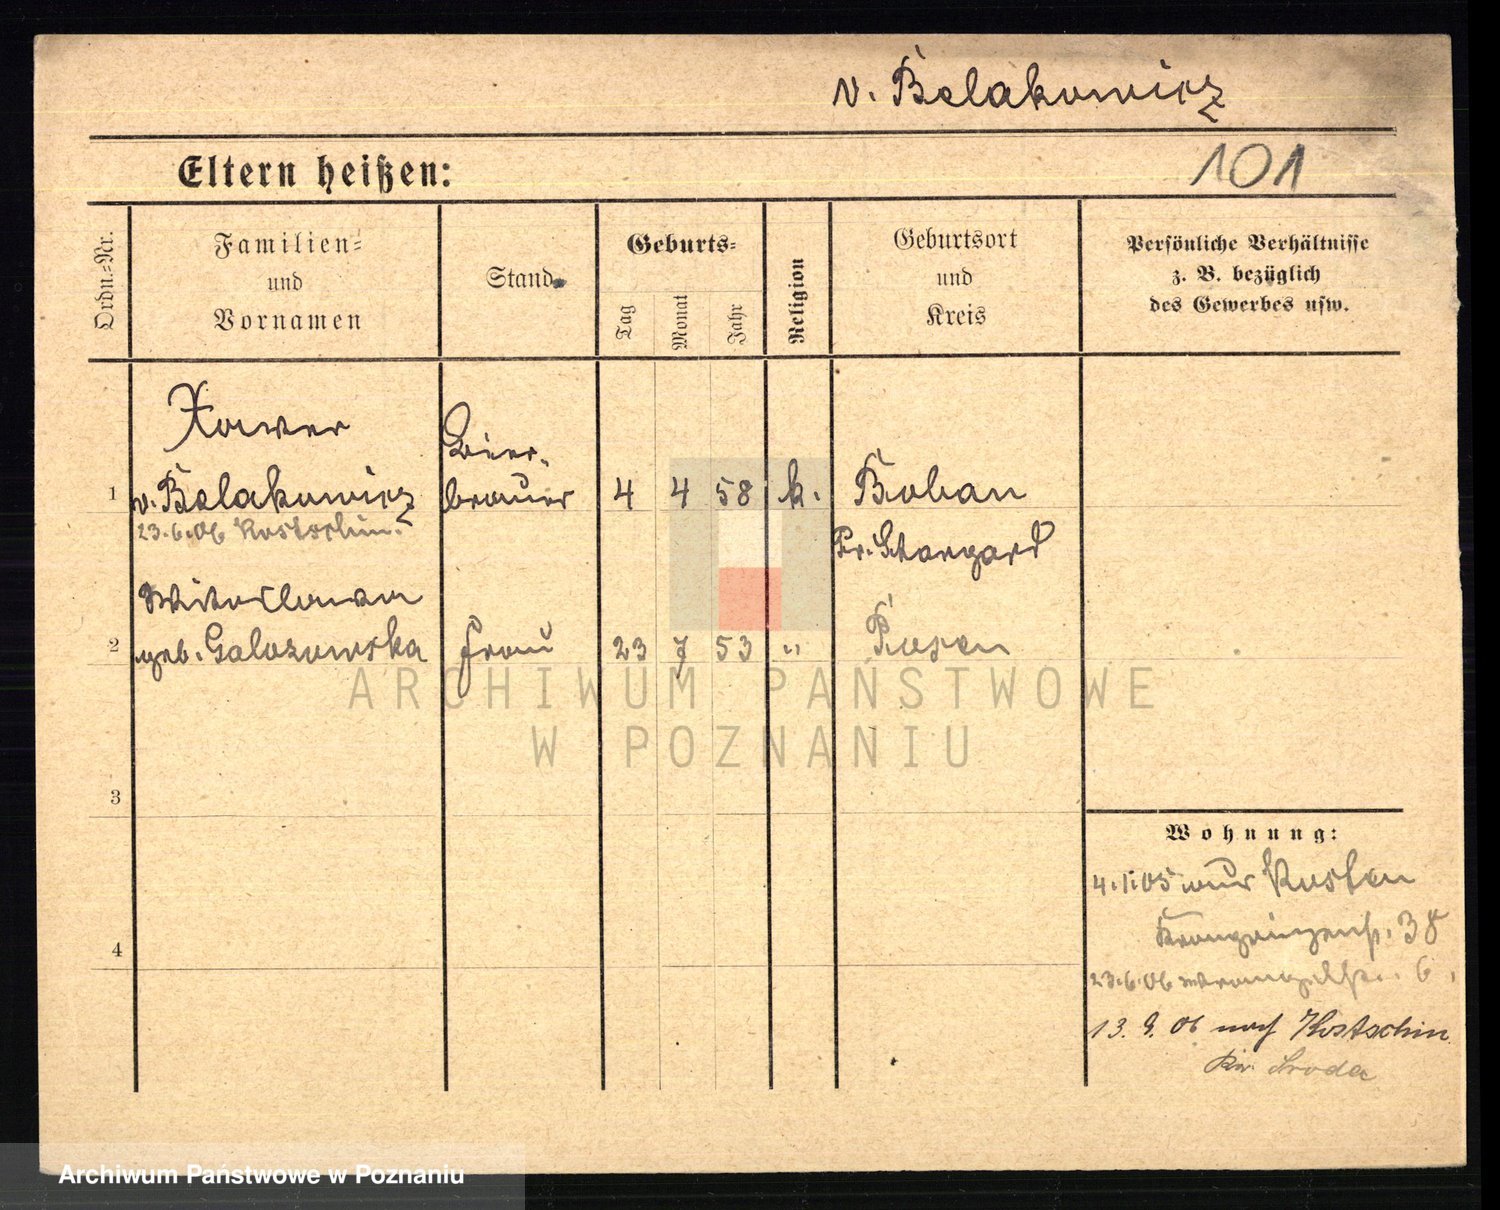 v. Belakowicz
Eltern heißen:
101
Ordn.=Nr.
Familien=
und
Vornamen
Stand
Geburts=
Tag
Monat
Jahr
Religion
Geburtsort
und
Kreis
Persönliche Verhältnisse
z. B. bezüglich
des Gewerbes usw.
Xaver
Bier-
1 v. Belakowicz brauer 4 4 58 k. Boban
23.6.06 Kostschin.
Pr. Stargard
2 geb. Galozowska Frau 23 7 53 " Posen
ARCHIWUM PAŃSTWOWE
W POZNANIU
3
Wohnung:
4.1.05 aus Kosten
4
Kronprinzenstr. 38
23.6.06 Wrangelstr. 6.
13.9.06 nach Kostschin
Kr. Sroda
Archiwum Państwowe w Poznaniu